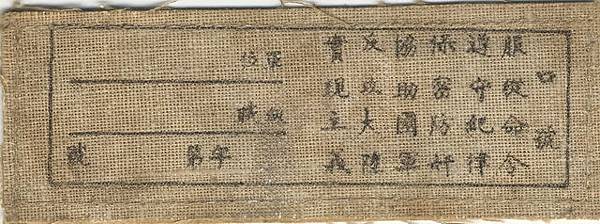 口號
服從命令
遵守紀律
保密防奸
協助國軍
反攻大陸
實現主義
單位
級職
字第 號